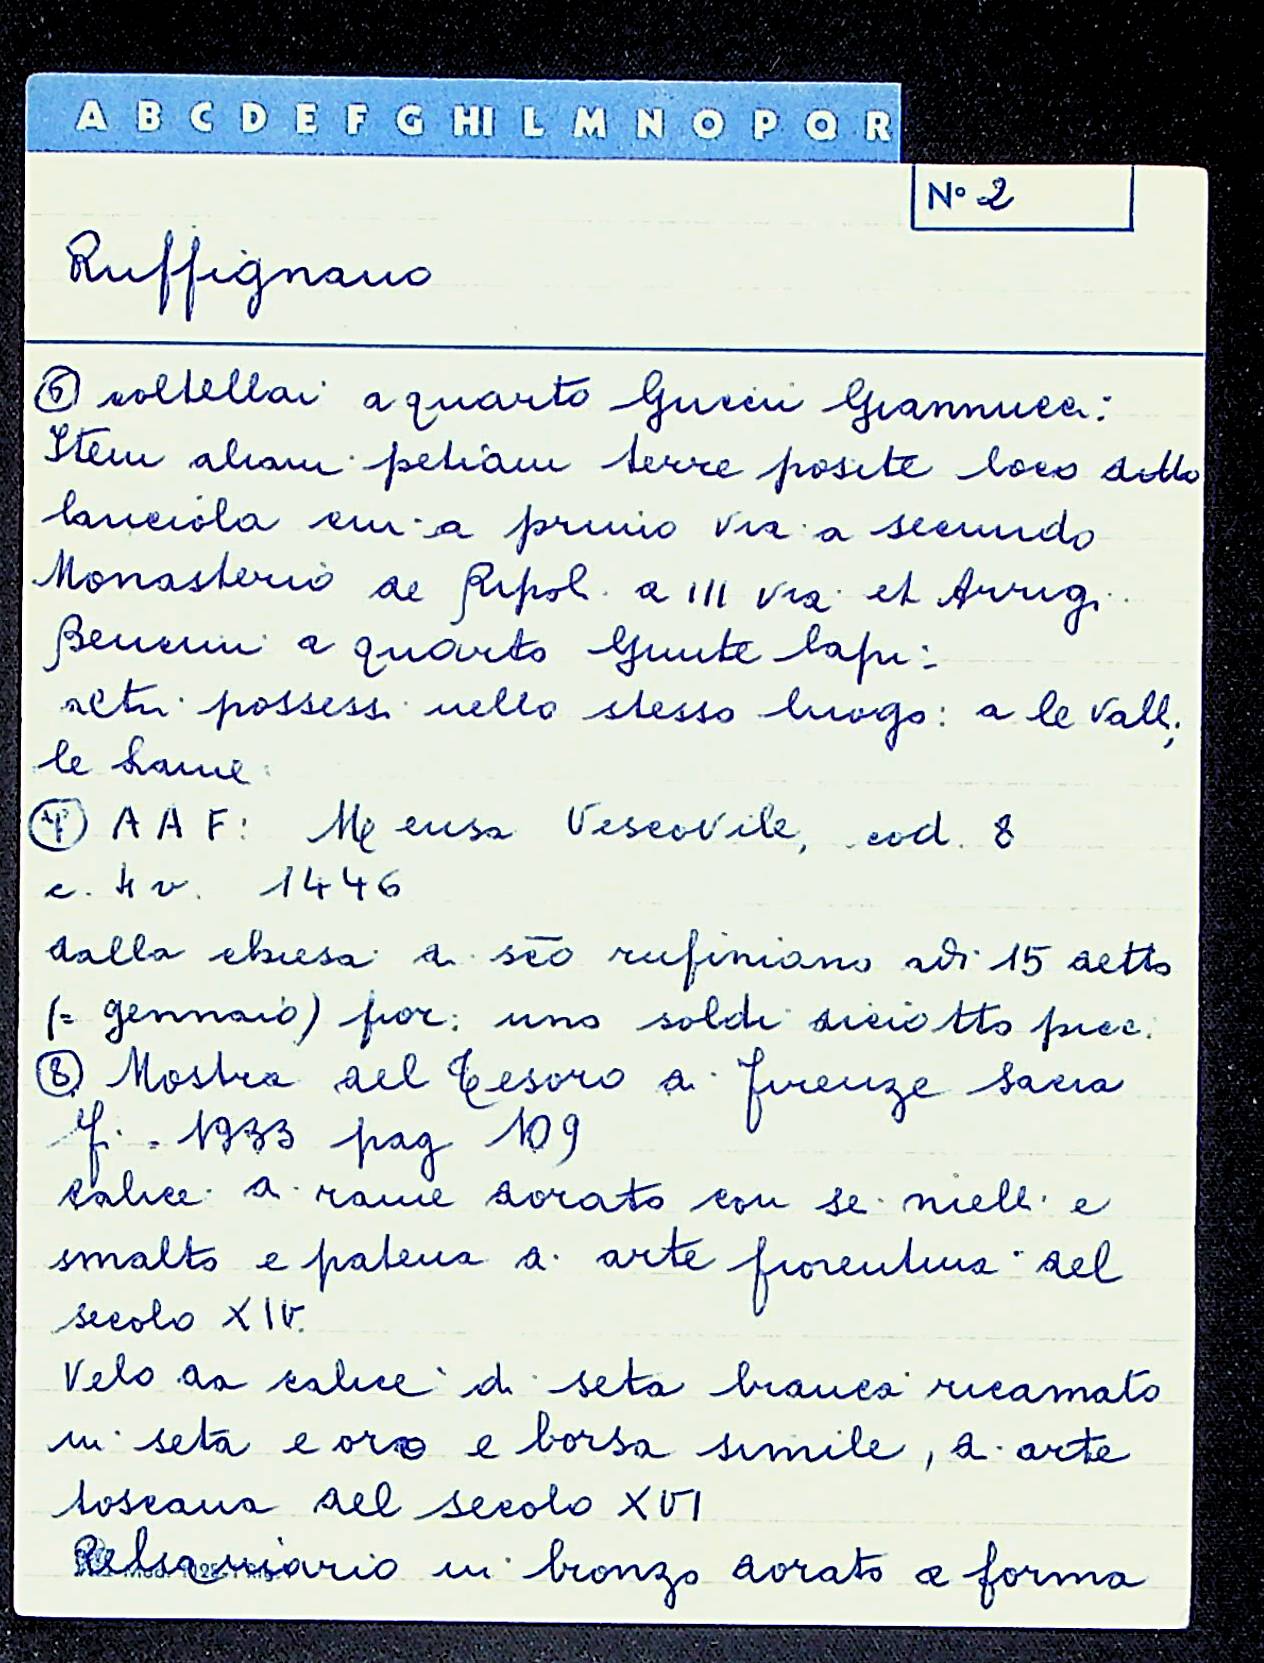 A B C D E F G HI L M N O P Q R
N° 2
Ruffignano
⑥ coltellai a quarto Guccii Giannucci:
Item aliam petiam terre posite loco ditto
lanciola cui a primo via a secundo
Monasterio de Ripol. a III via et Arrigi
Bencini a quarto Giunte Lapi:
altri possessi nello stesso luogo: a le Valli,
le Lame
⑦ A A F: Mensa Vescovile, cod. 8
c. 4 v. 1446
dalla chiesa di sc̄o rufiniano adì 15 detto
(= gennaio) fior: uno soldi diciotto picc:
⑧ Mostra del Tesoro di Firenze Sacra
F. 1933 pag 109
calice di rame dorato con sei nielli e
smalto e patena di arte fiorentina del
secolo XIV.
Velo da calice di seta bianca ricamato
in seta e oro e borsa simile, di arte
toscana del secolo XVI
Reliquiario in bronzo dorato a forma